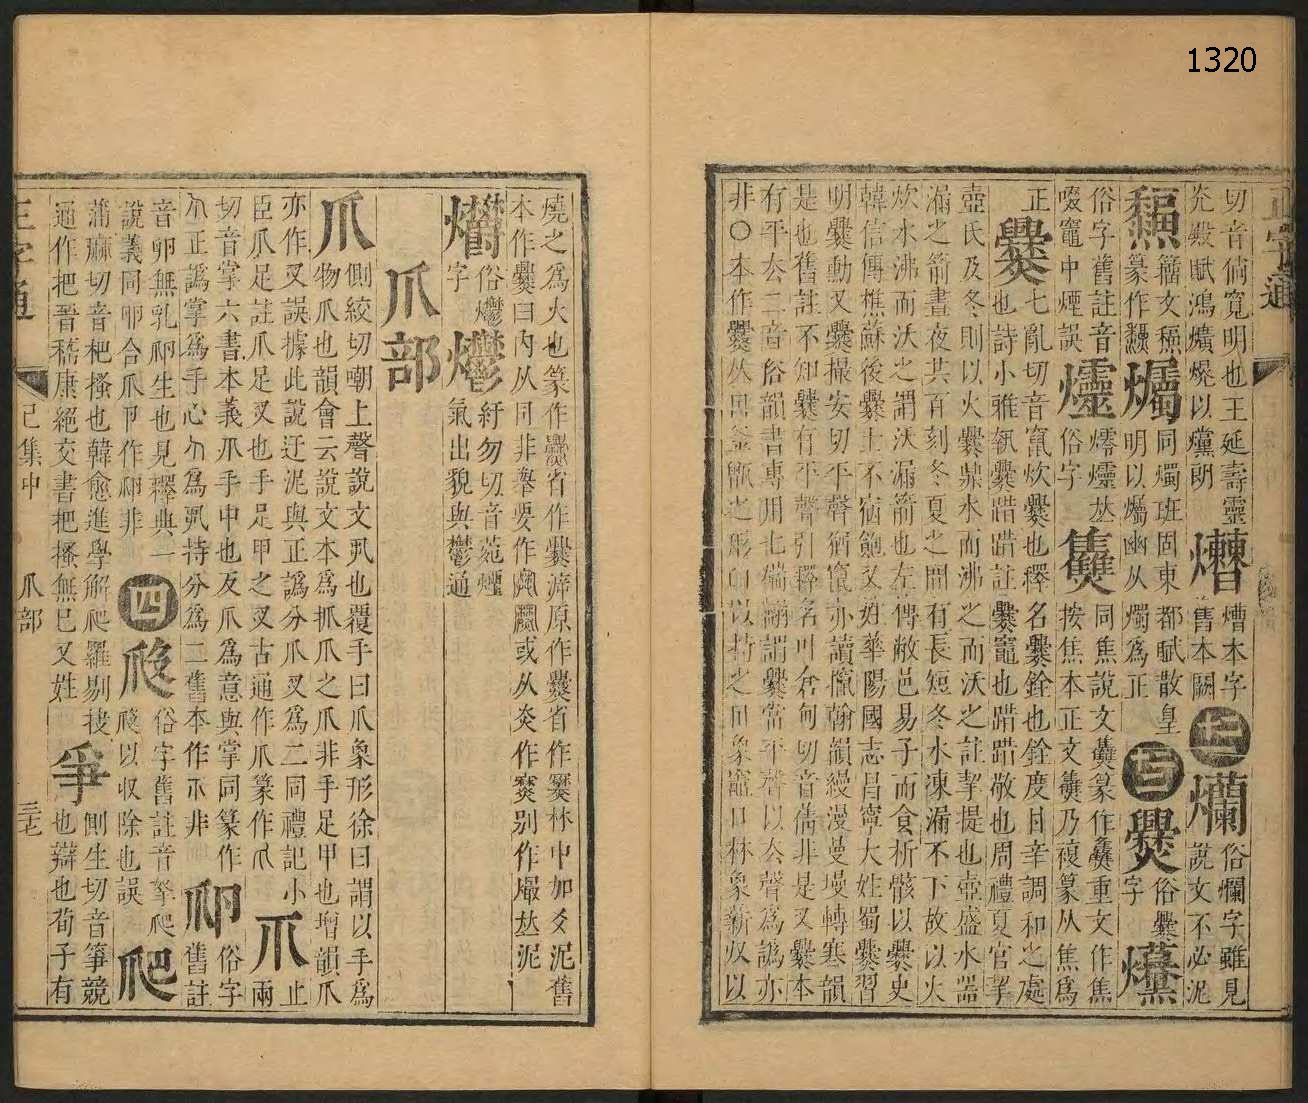 1320
正字通
切音倘寬明也王延壽靈
光殿賦鴻爌炾以爣朗
燼本字
舊本闕
十二
爤
俗爛字雖見
說文不必泥
籀文
篆作
爥
同燭班固東都賦散皇
明以爥幽从燭為正
十三
俗爨
字
俗字舊註音
啜竈中煙誤
爧
俗字
同焦說文篆作重文作焦
按焦本正文乃複篆从焦爲
正
爨
七亂切音竄炊爨也釋名爨銓也銓度甘辛調和之處
也詩小雅執爨踖踖註爨竈也踖踖敬也周禮夏官挈
壺氏及冬則以火爨鼎水而沸之而沃之註挈提也壺盛水器
漏之箭晝夜共百刻冬夏之間有長短冬水凍漏不下故以火
炊水沸而沃之謂沃漏箭也左傳敝邑易子而食析骸以爨史
韓信傳樵蘇後爨士不宿飽又姓華陽國志昌寧大姓蜀爨習
明爨動又爨撮安切平聲猶竄亦讀攛翰韻縵漫蔓墁轉寒韻
是也舊註不知爨有平聲引釋名叶倉甸切音蒨非是又爨本
有平去二音俗韻書專用七亂翻謂爨當平聲以去聲為譌亦
非○本作爨从𦥑釜甑之形臼以持之冂象竈口林象薪収以
燒之爲火也篆作省作爨滹原作爨省作㸑林中加爻泥舊
本作爨曰内从同非舉要作或从炎作別作熶𠀤泥
爩
俗爩
字
爩
紆勿切音菀煙
氣出貌與鬱通
爪部
爪
側絞切嘲上聲說文丮也覆手曰爪象形徐曰謂以手爲
物爪也韻會云說文本為抓爪之爪非手足甲也增韻爪
亦作叉誤據此說迂泥與正譌分爪叉爲二同禮記小
臣爪足註爪足叉也手足甲之叉古通作爪篆作爪
爪
兩
止
切音掌六書本義爪手中也反爪爲意與掌同篆作
爪正譌掌爲手心爪爲丮持分爲二舊本作爪非
俗字
舊註
音卵無乳卵生也見釋典一
說義同卵合爪卩作非
四
爮
俗字舊註音拏爬
以収除也誤
爬
蒲麻切音杷搔也韓愈進學解爬羅剔抉
通作把晉嵇康絕交書把搔無已又姓
爭
側生切音箏競
也辯也荀子有
正字通
巳集中
爪部
三十七